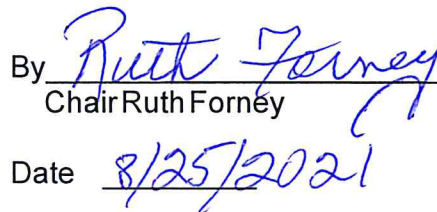 By Ruth Forney
Chair Ruth Forney
Date 8/25/2021